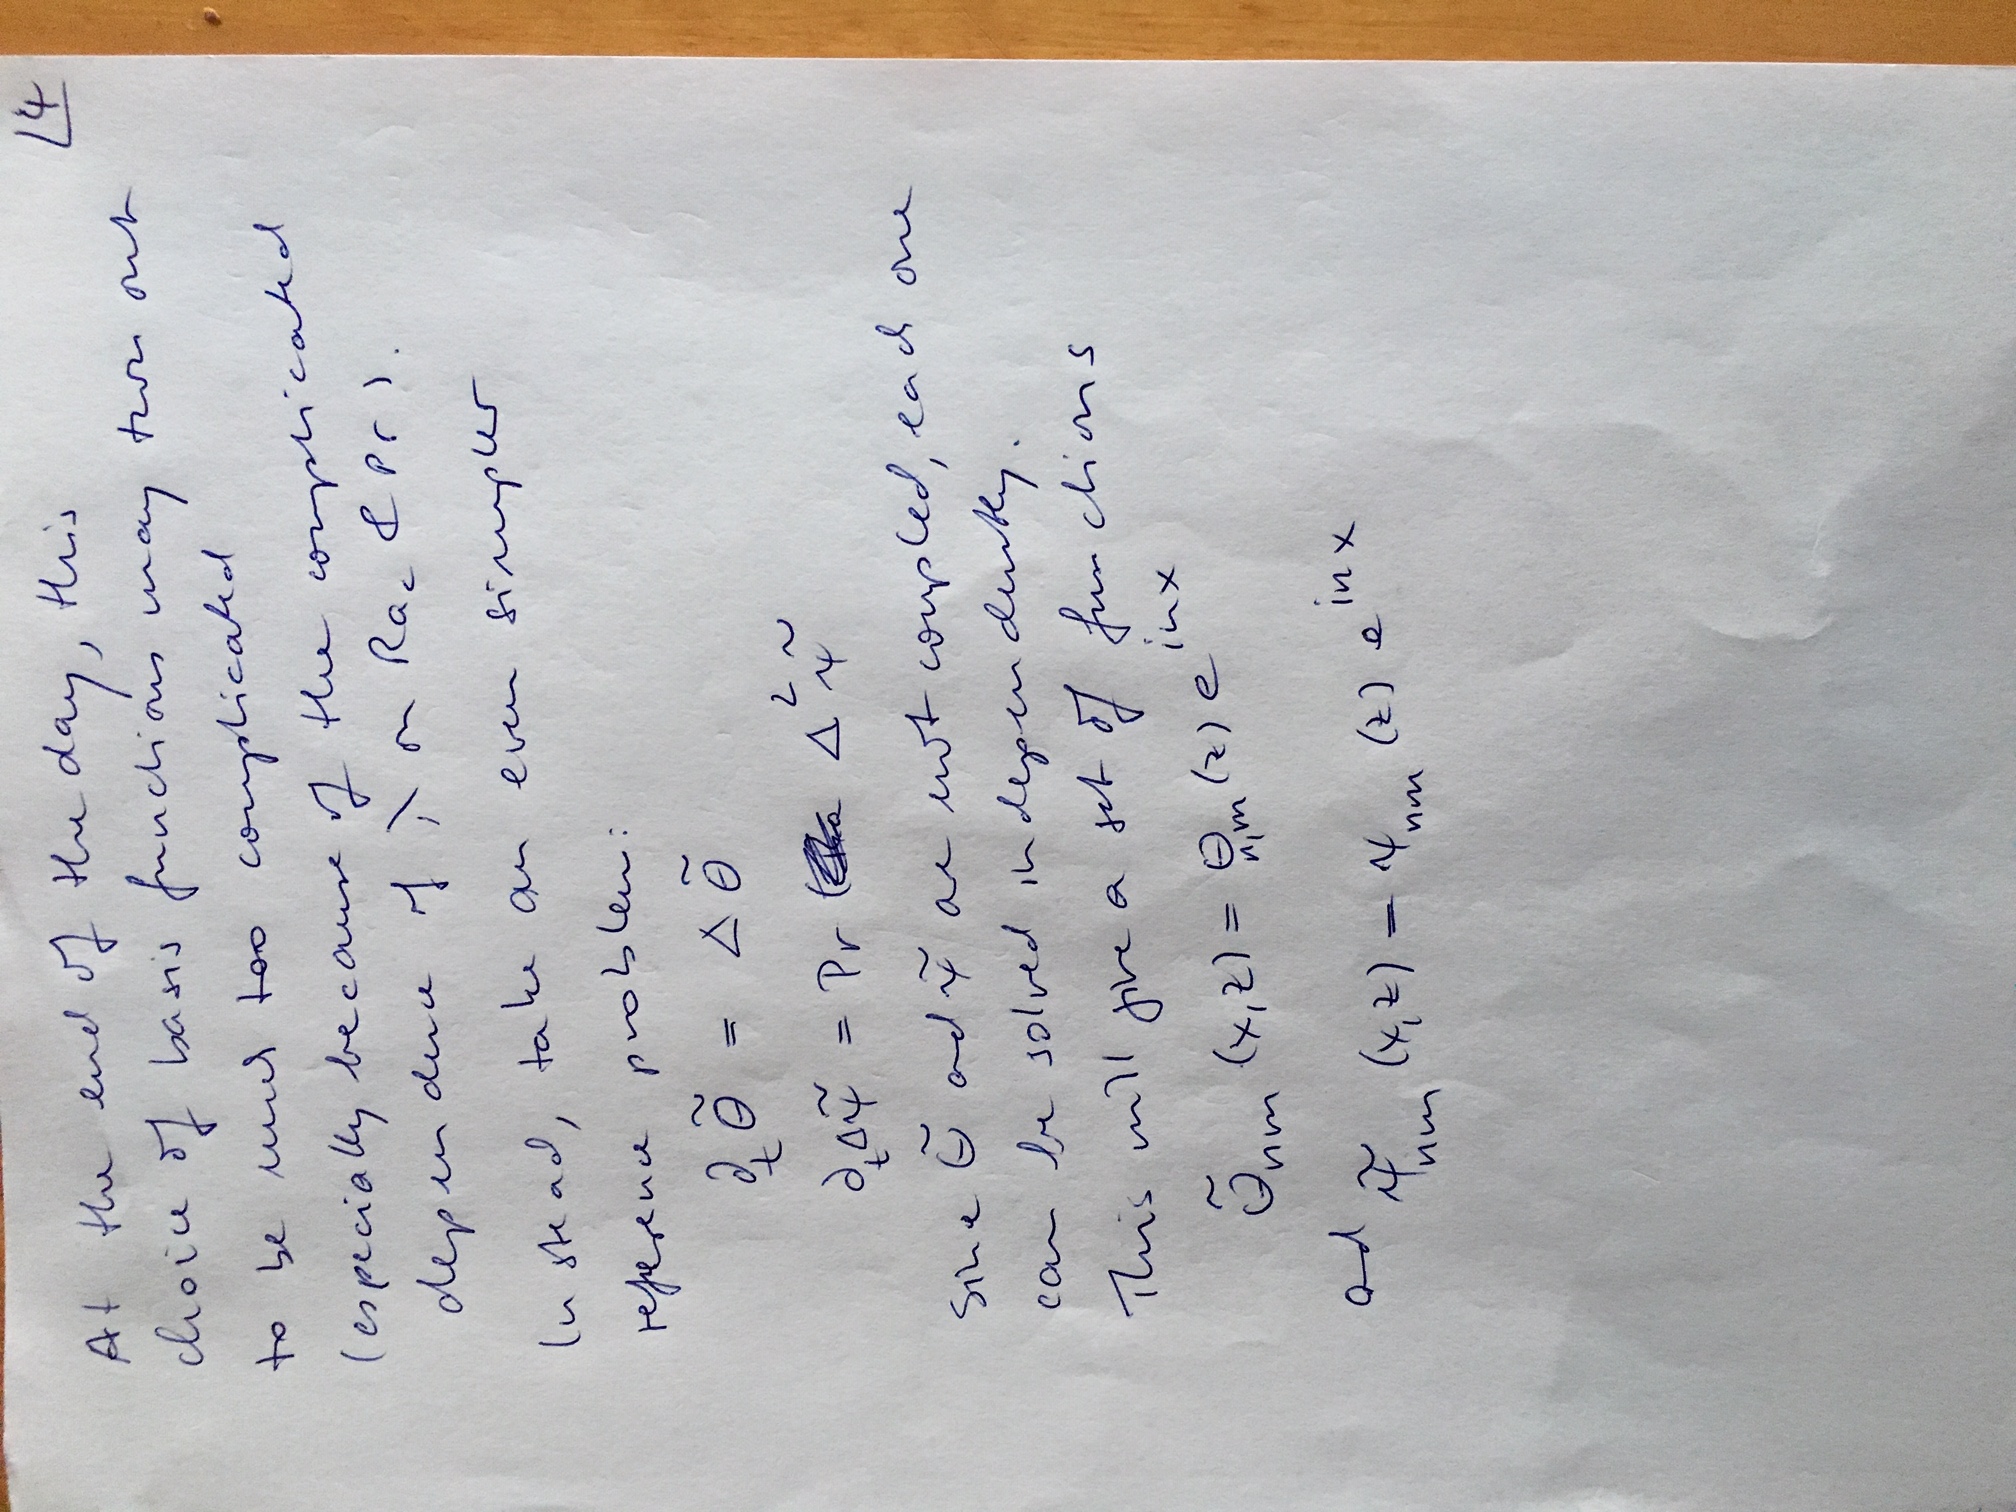 4
At the end of the day, this
choice of basis functions may turn out
to be much too complicated
(especially because of the complicated
dependence of λ on Ra_c & Pr).
Instead, take an even simpler
reference problem:
∂_t θ̃ = Δ θ̃
∂_t Δψ̃ = Pr Δ² ψ̃
Since θ̃ and ψ̃ are not coupled, each one
can be solved independently.
This will give a set of functions
θ̃_nm (x,z) = θ_n,m (z) e^inx
and ψ̃_nm (x,z) = ψ_nm (z) e^inx